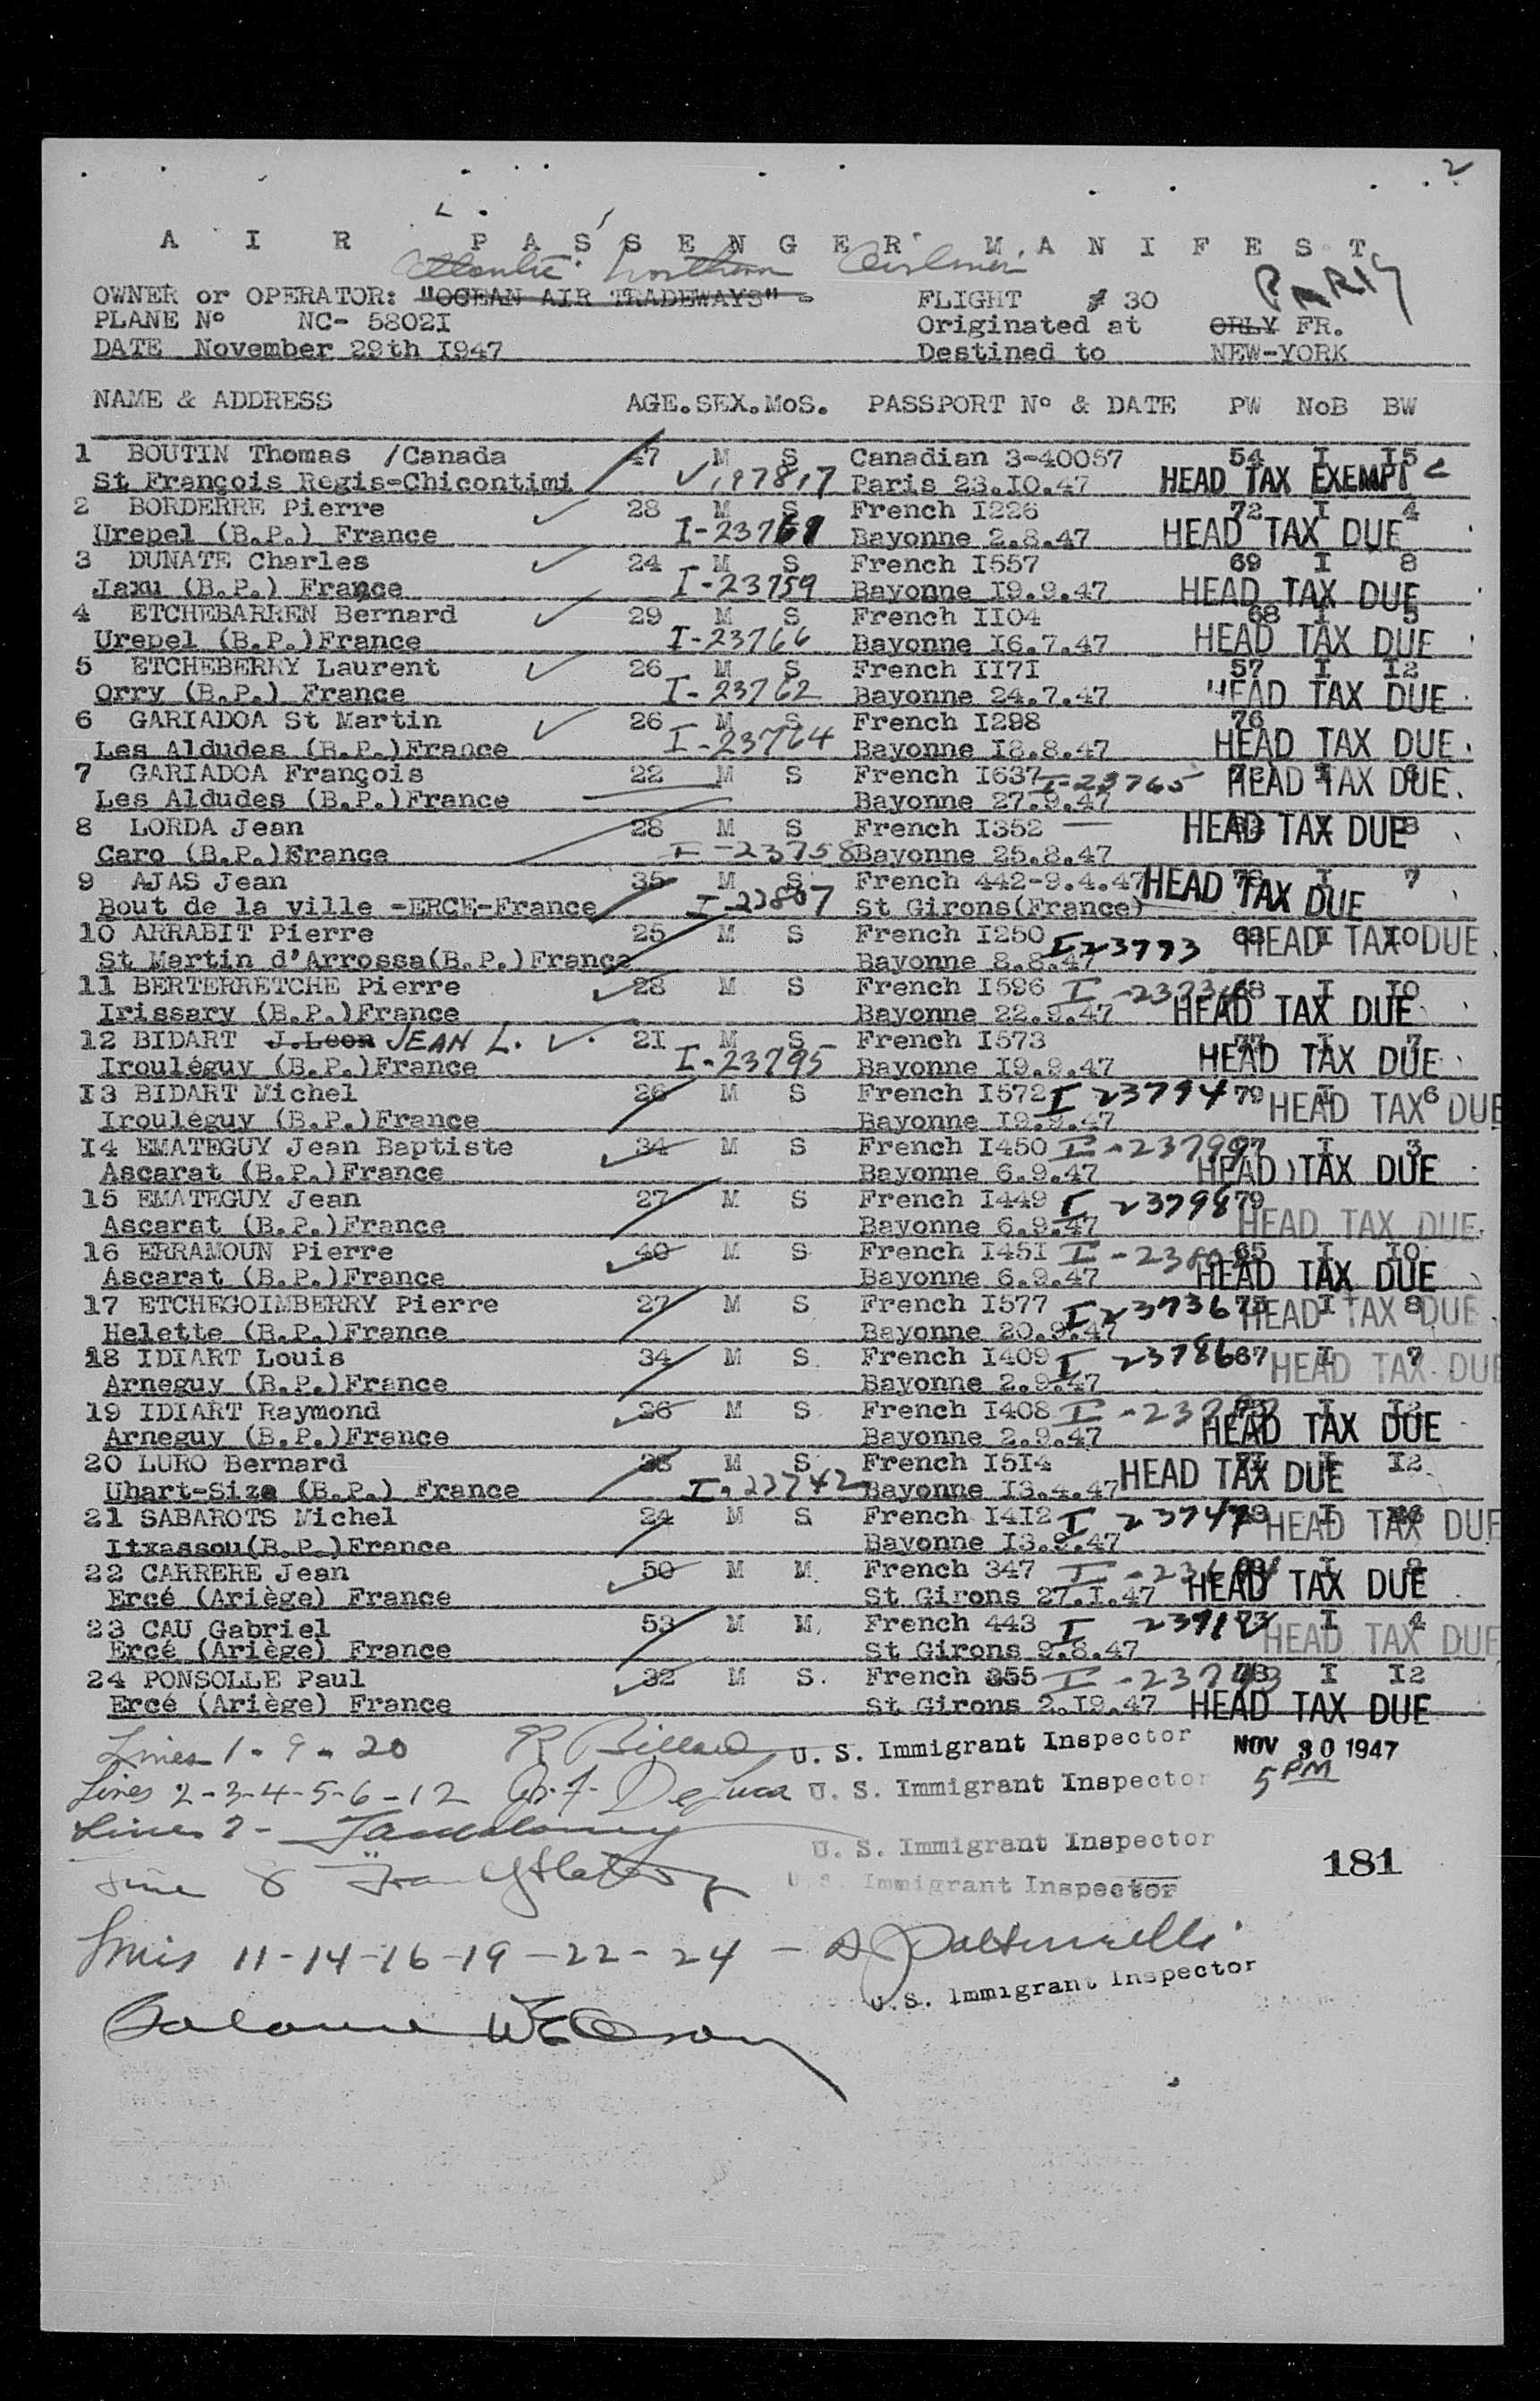 2
A I R P A S S E N G E R M A N I F E S T
Atlantic Northern Airlines
OWNER or OPERATOR: "OCEAN AIR TRADEWAYS" FLIGHT # 30 PARIS
PLANE N° NC- 5802I Originated at ORLY FR.
DATE November 29th I947 Destined to NEW-YORK
NAME & ADDRESS AGE. SEX. MoS. PASSPORT N° & DATE PW NoB BW
1 BOUTIN Thomas /Canada 47 M S Canadian 3-40057 54 I I5
St François Regis-Chicontimi Paris 23.I0.47 HEAD TAX EXEMPT
2 BORDERRE Pierre 28 M S French I226 72 I 4
Urepel (B.P.) France Bayonne 2.8.47 HEAD TAX DUE
3 DUNATE Charles 24 M S French I557 69 I 8
Jaxu (B.P.) France I-23759 Bayonne I9.9.47 HEAD TAX DUE
4 ETCHEBARREN Bernard 29 M S French II04 68 I 5
Urepel (B.P.)France I-23766 Bayonne I6.7.47 HEAD TAX DUE
5 ETCHEBERRY Laurent 26 M S French II7I 57 I I2
Orry (B.P.) France I-23762 Bayonne 24.7.47 HEAD TAX DUE
6 GARIADOA St Martin 26 M S French I298 76
Les Aldudes (B.P.)France I-23764 Bayonne I8.8.47 HEAD TAX DUE
7 GARIADOA François 22 M S French I637 I-23765 HEAD TAX DUE
Les Aldudes (B.P.)France Bayonne 27.9.47
8 LORDA Jean 28 M S French I352 HEAD TAX DUE
Caro (B.P.)France I-23758 Bayonne 25.8.47
9 AJAS Jean 35 M S French 442-9.4.47 I 7
Bout de la ville -ERCE-France I-23807 St Girons(France) HEAD TAX DUE
10 ARRABIT Pierre 25 M S French I250 I 23793 68 I I0 HEAD TAX DUE
St Martin d'Arrossa(B.P.)France Bayonne 8.8.47
11 BERTERRETCHE Pierre 28 M S French I596 68 I I0
Irissary (B.P.)France Bayonne 22.9.47 HEAD TAX DUE
12 BIDART J.Leon JEAN L. 2I M S French I573 77 I 7
Irouléguy (B.P.)France I-23795 Bayonne I9.9.47 HEAD TAX DUE
I3 BIDART Michel 26 M S French I572 I 23794 79 I 6 HEAD TAX DUE
Irouléguy (B.P.)France Bayonne I9.9.47
I4 EMATEGUY Jean Baptiste 34 M S French I450 I 3
Ascarat (B.P.)France Bayonne 6.9.47 HEAD TAX DUE
15 EMATEGUY Jean 27 M S French I449 I 23798 79
Ascarat (B.P.)France Bayonne 6.9.47 HEAD TAX DUE
16 ERRAMOUN Pierre 40 M S French I45I 65 I I0
Ascarat (B.P.)France Bayonne 6.9.47 HEAD TAX DUE
17 ETCHEGOIMBERRY Pierre 27 M S French I577 I 23736 I 8 HEAD TAX DUE
Helette (B.P.)France Bayonne 20.9.47
18 IDIART Louis 34 M S French I409 I 23786 67 I 7 HEAD TAX DUE
Arneguy (B.P.)France Bayonne 2.9.47
19 IDIART Raymond 26 M S French I408 I I2
Arneguy (B.P.)France Bayonne 2.9.47 HEAD TAX DUE
20 LURO Bernard M S French I5I4 I2 HEAD TAX DUE
Uhart-Size (B.P.) France I-23742 Bayonne I3.4.47
21 SABAROTS Michel 24 M S French I4I2 HEAD TAX DUE
Itxassou(B.P.)France Bayonne I3.9.47
22 CARRERE Jean 50 M M French 347 I 8
Ercé (Ariège) France St Girons 27.I.47 HEAD TAX DUE
23 CAU Gabriel 53 M M French 443 I 4 HEAD TAX DUE
Ercé (Ariège) France St Girons 9.8.47
24 PONSOLLE Paul 32 M S. French 355 I I2
Ercé (Ariège) France St Girons 2.I9.47 HEAD TAX DUE
Lines 1-9-20 U. S. Immigrant Inspector NOV 30 1947
Lines 2-3-4-5-6-12 U. S. Immigrant Inspector 5 PM
Lines U. S. Immigrant Inspector
Line 8 U. S. Immigrant Inspector 181
Lines 11-14-16-19-22-24
U.S. Immigrant Inspector
Balance